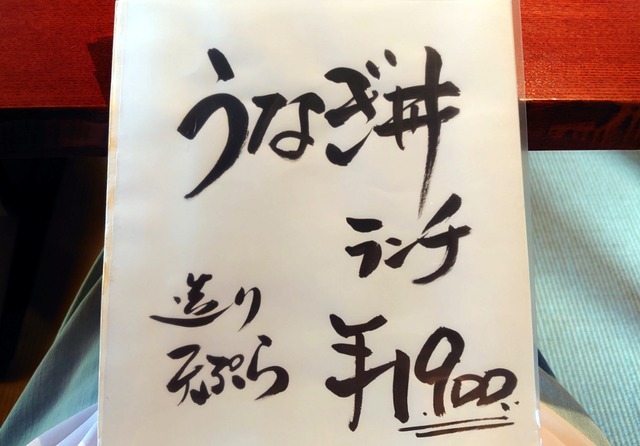 うなぎ丼
ランチ
造り
天ぷら
¥1,900.